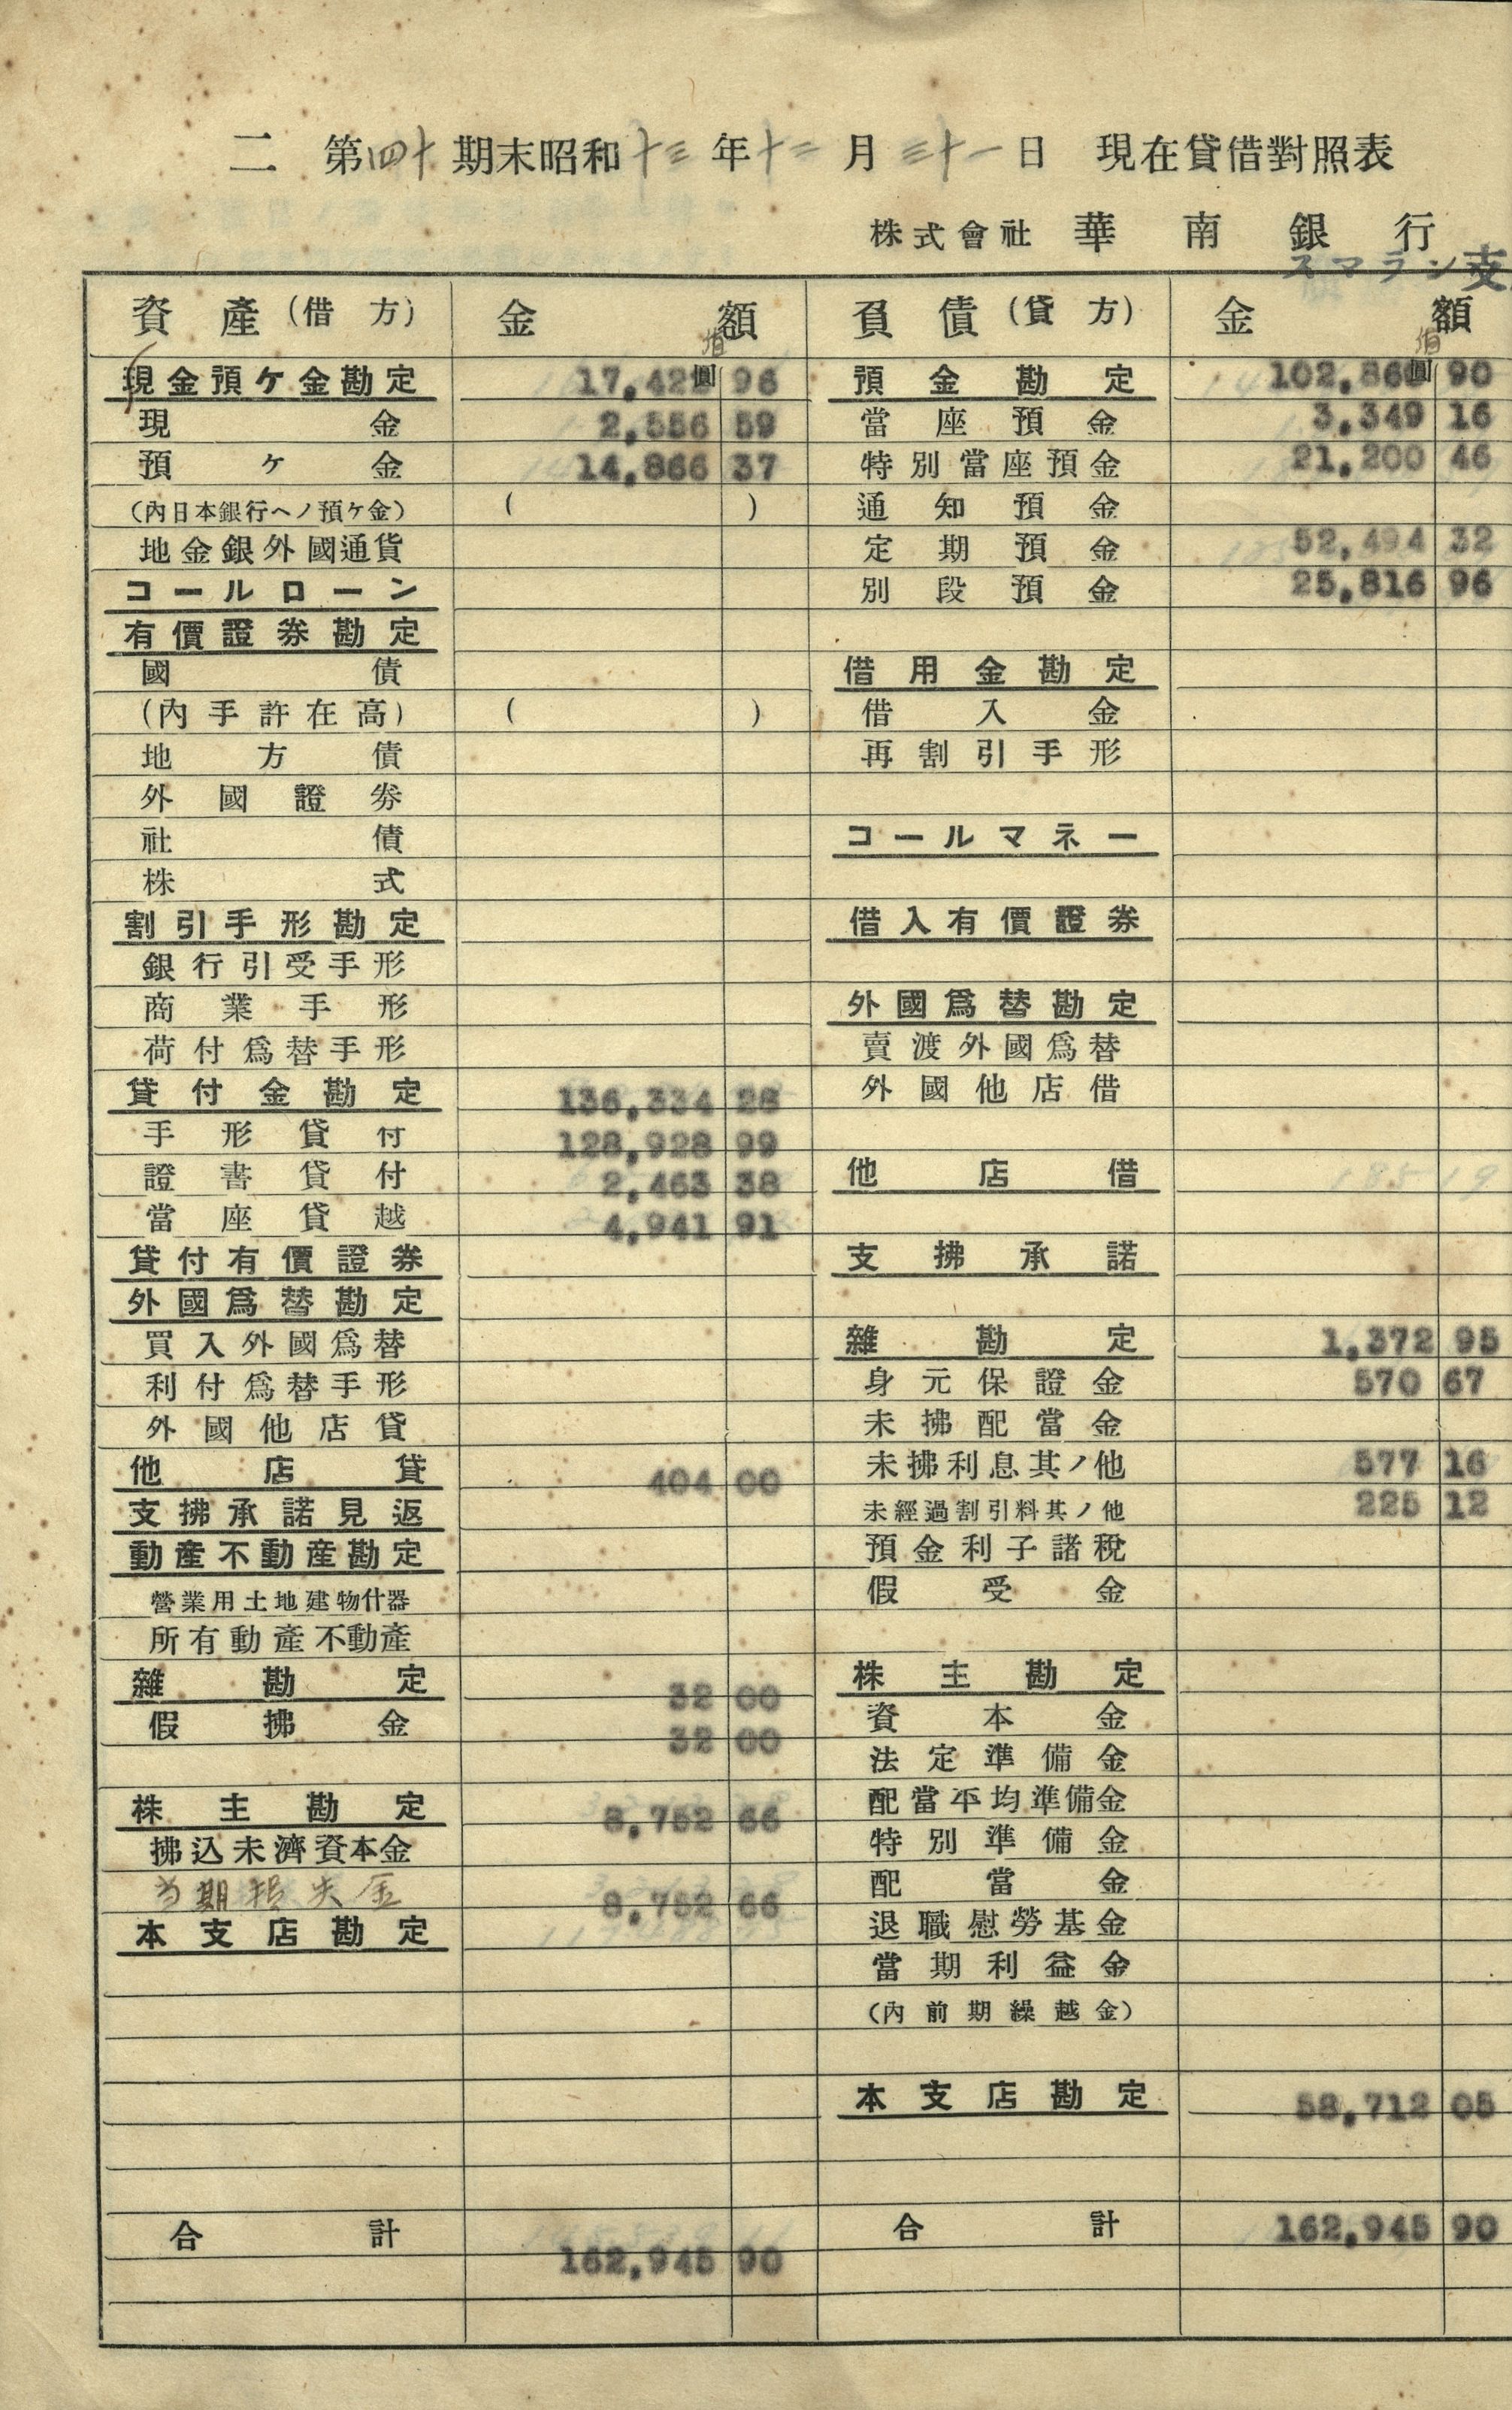 二　第四十期末昭和十三年十二月三十一日　現在貸借對照表
株式會社　華南銀行
スマラン支
資產(借方)　金額　負債(貸方)　金額
現金預ケ金勘定　17,422 96　預金勘定　102,860 90
現金　2,556 59　當座預金　3,349 16
預ケ金　14,866 37　特別當座預金　21,200 46
(內日本銀行ヘノ預ケ金)　(　)　通知預金
地金銀外國通貨　定期預金　52,494 32
コールローン　別段預金　25,816 96
有價證券勘定
國債　借用金勘定
(內手許在高)　(　)　借入金
地方債　再割引手形
外國證券
社債　コールマネー
株式
割引手形勘定　借入有價證券
銀行引受手形
商業手形　外國爲替勘定
荷付爲替手形　賣渡外國爲替
貸付金勘定　136,334 28　外國他店借
手形貸付　128,928 99
證書貸付　2,463 38　他店借
當座貸越　4,941 91
貸付有價證券　支拂承諾
外國爲替勘定
買入外國爲替　雜勘定　1,372 95
利付爲替手形　身元保證金　570 67
外國他店貸　未拂配當金
他店貸　404 00　未拂利息其ノ他　577 16
支拂承諾見返　未經過割引料其ノ他　225 12
動產不動產勘定　預金利子諸稅
營業用土地建物什器　假受金
所有動產不動產
雜勘定　32 00　株主勘定
假拂金　32 00　資本金
法定準備金
株主勘定　8,752 66　配當平均準備金
拂込未濟資本金　特別準備金
当期損失金　8,752 66　配當金
本支店勘定　退職慰勞基金
當期利益金
(內前期繰越金)
本支店勘定　58,712 05
合計　162,945 90　合計　162,945 90